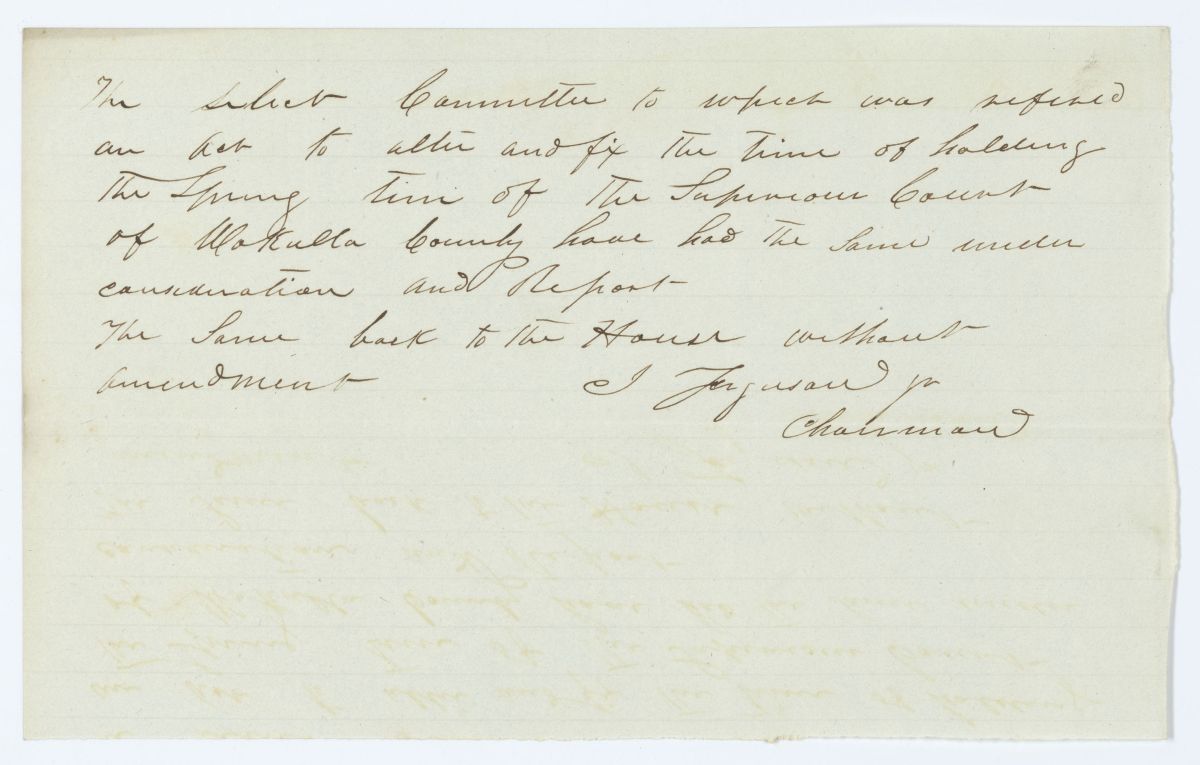 The select Committee to which was refered
an Act to alter and fix the time of holding
the Spring tirm of the Superiour Court
of Wakulla County have had the same under
consideration and Report
The Same back to the House without
amendment I Ferguson jr
Chairman